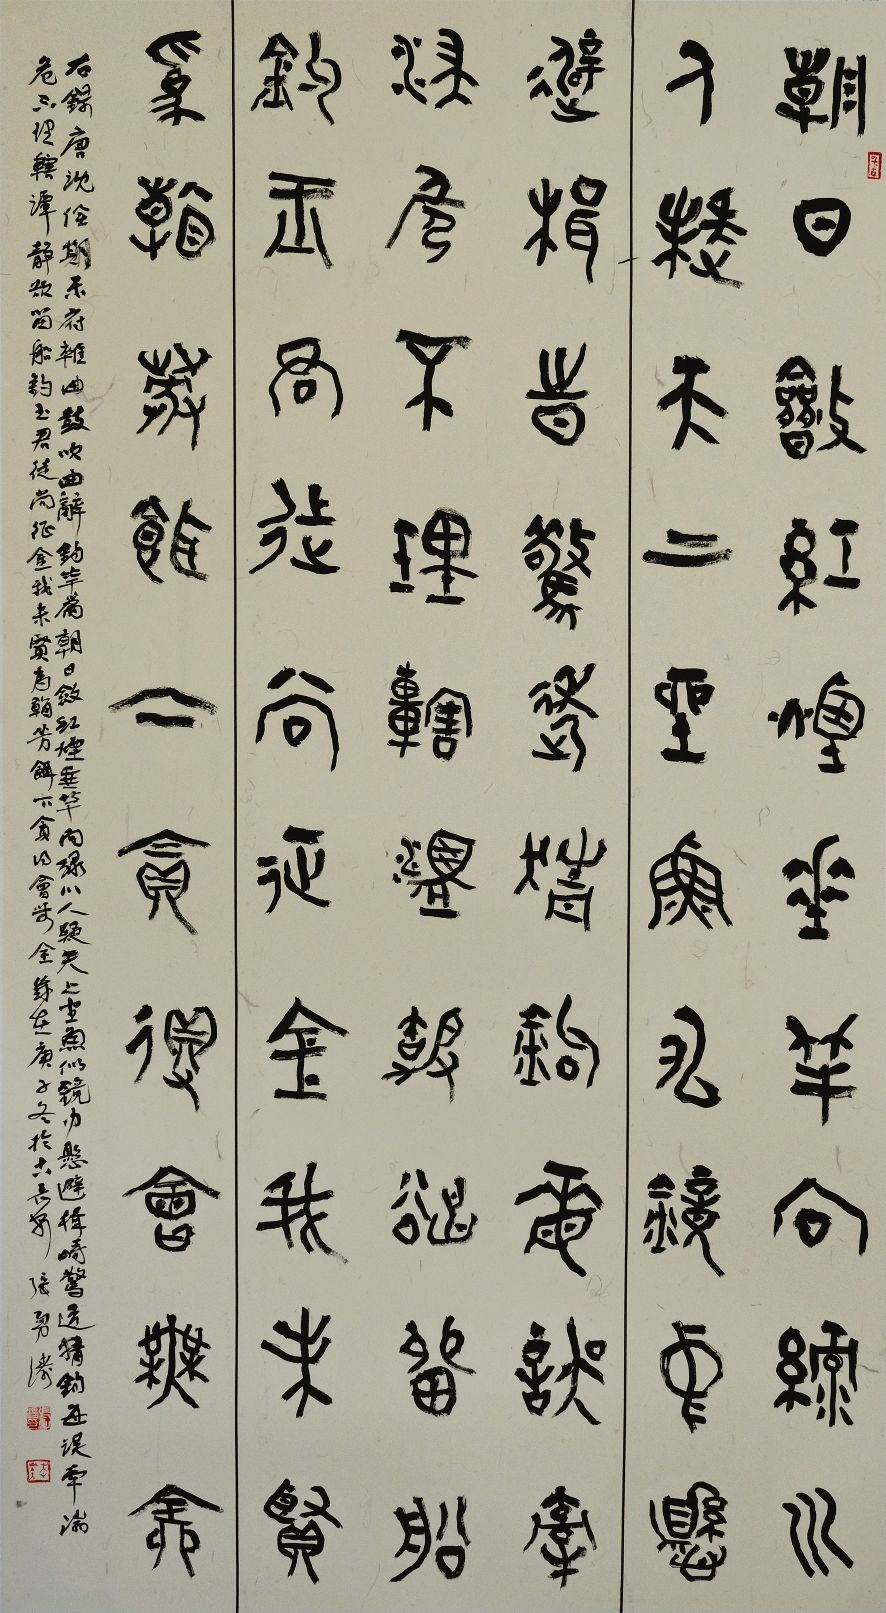 朝日斂紅煙垂竿向綠川
人疑天上坐魚似鏡中懸
避楫時驚透猜鉤每誤牽
湍危不理轄潭靜欲留船
釣玉君徒尚征金我未賢
為翰芳餌下貪得會無筌
右錄唐沈佺期樂府雜曲鼓吹曲辭釣竿篇朝日斂紅煙垂竿向綠川人疑天上坐魚似鏡中懸避楫時驚透猜鉤每誤牽湍
危不理轄潭靜欲留船釣玉君徒尚征金我未賢為翰芳餌下貪得會無筌歲在庚子冬於古長安張勇濤